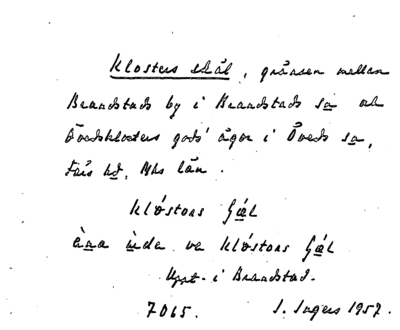 Klosters skäl, gränsen mellan
Brandstads by i Brandstads sn och
Övedsklosters gods' ägor i Öveds sn,
Färs hd, Mhs län.
klóstons ʃǽl
àna ùda va klóstons ʃǽl
Uppt. i Brandstad.
7065. S. Ingers 1957.